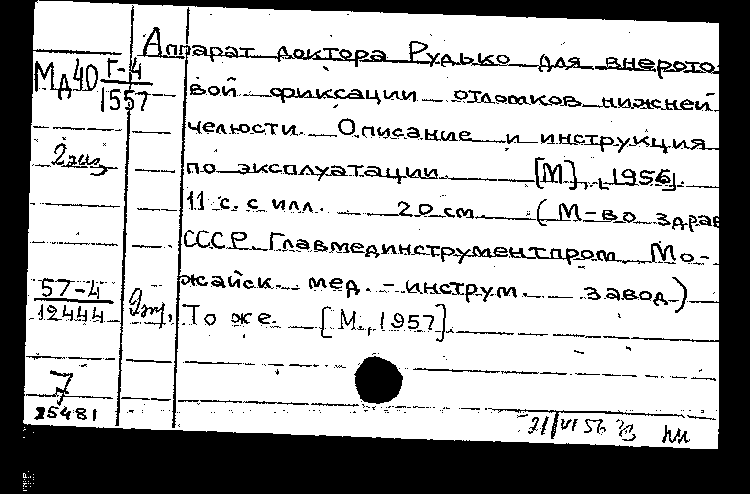 Аппарат доктора Рудько для внерото-
МД40 Г-4/1557
вой фиксации отломков нижней
челюсти. Описание и инструкция
2 экз
по эксплуатации. [М], [1956].
11 с. с илл. 20 см. (М-во здрав
СССР. Главмединструментпром. Мо-
жайск. мед.-инструм. завод)
57-4/12444
2 экз. То же. [М., 1957].
7
25481